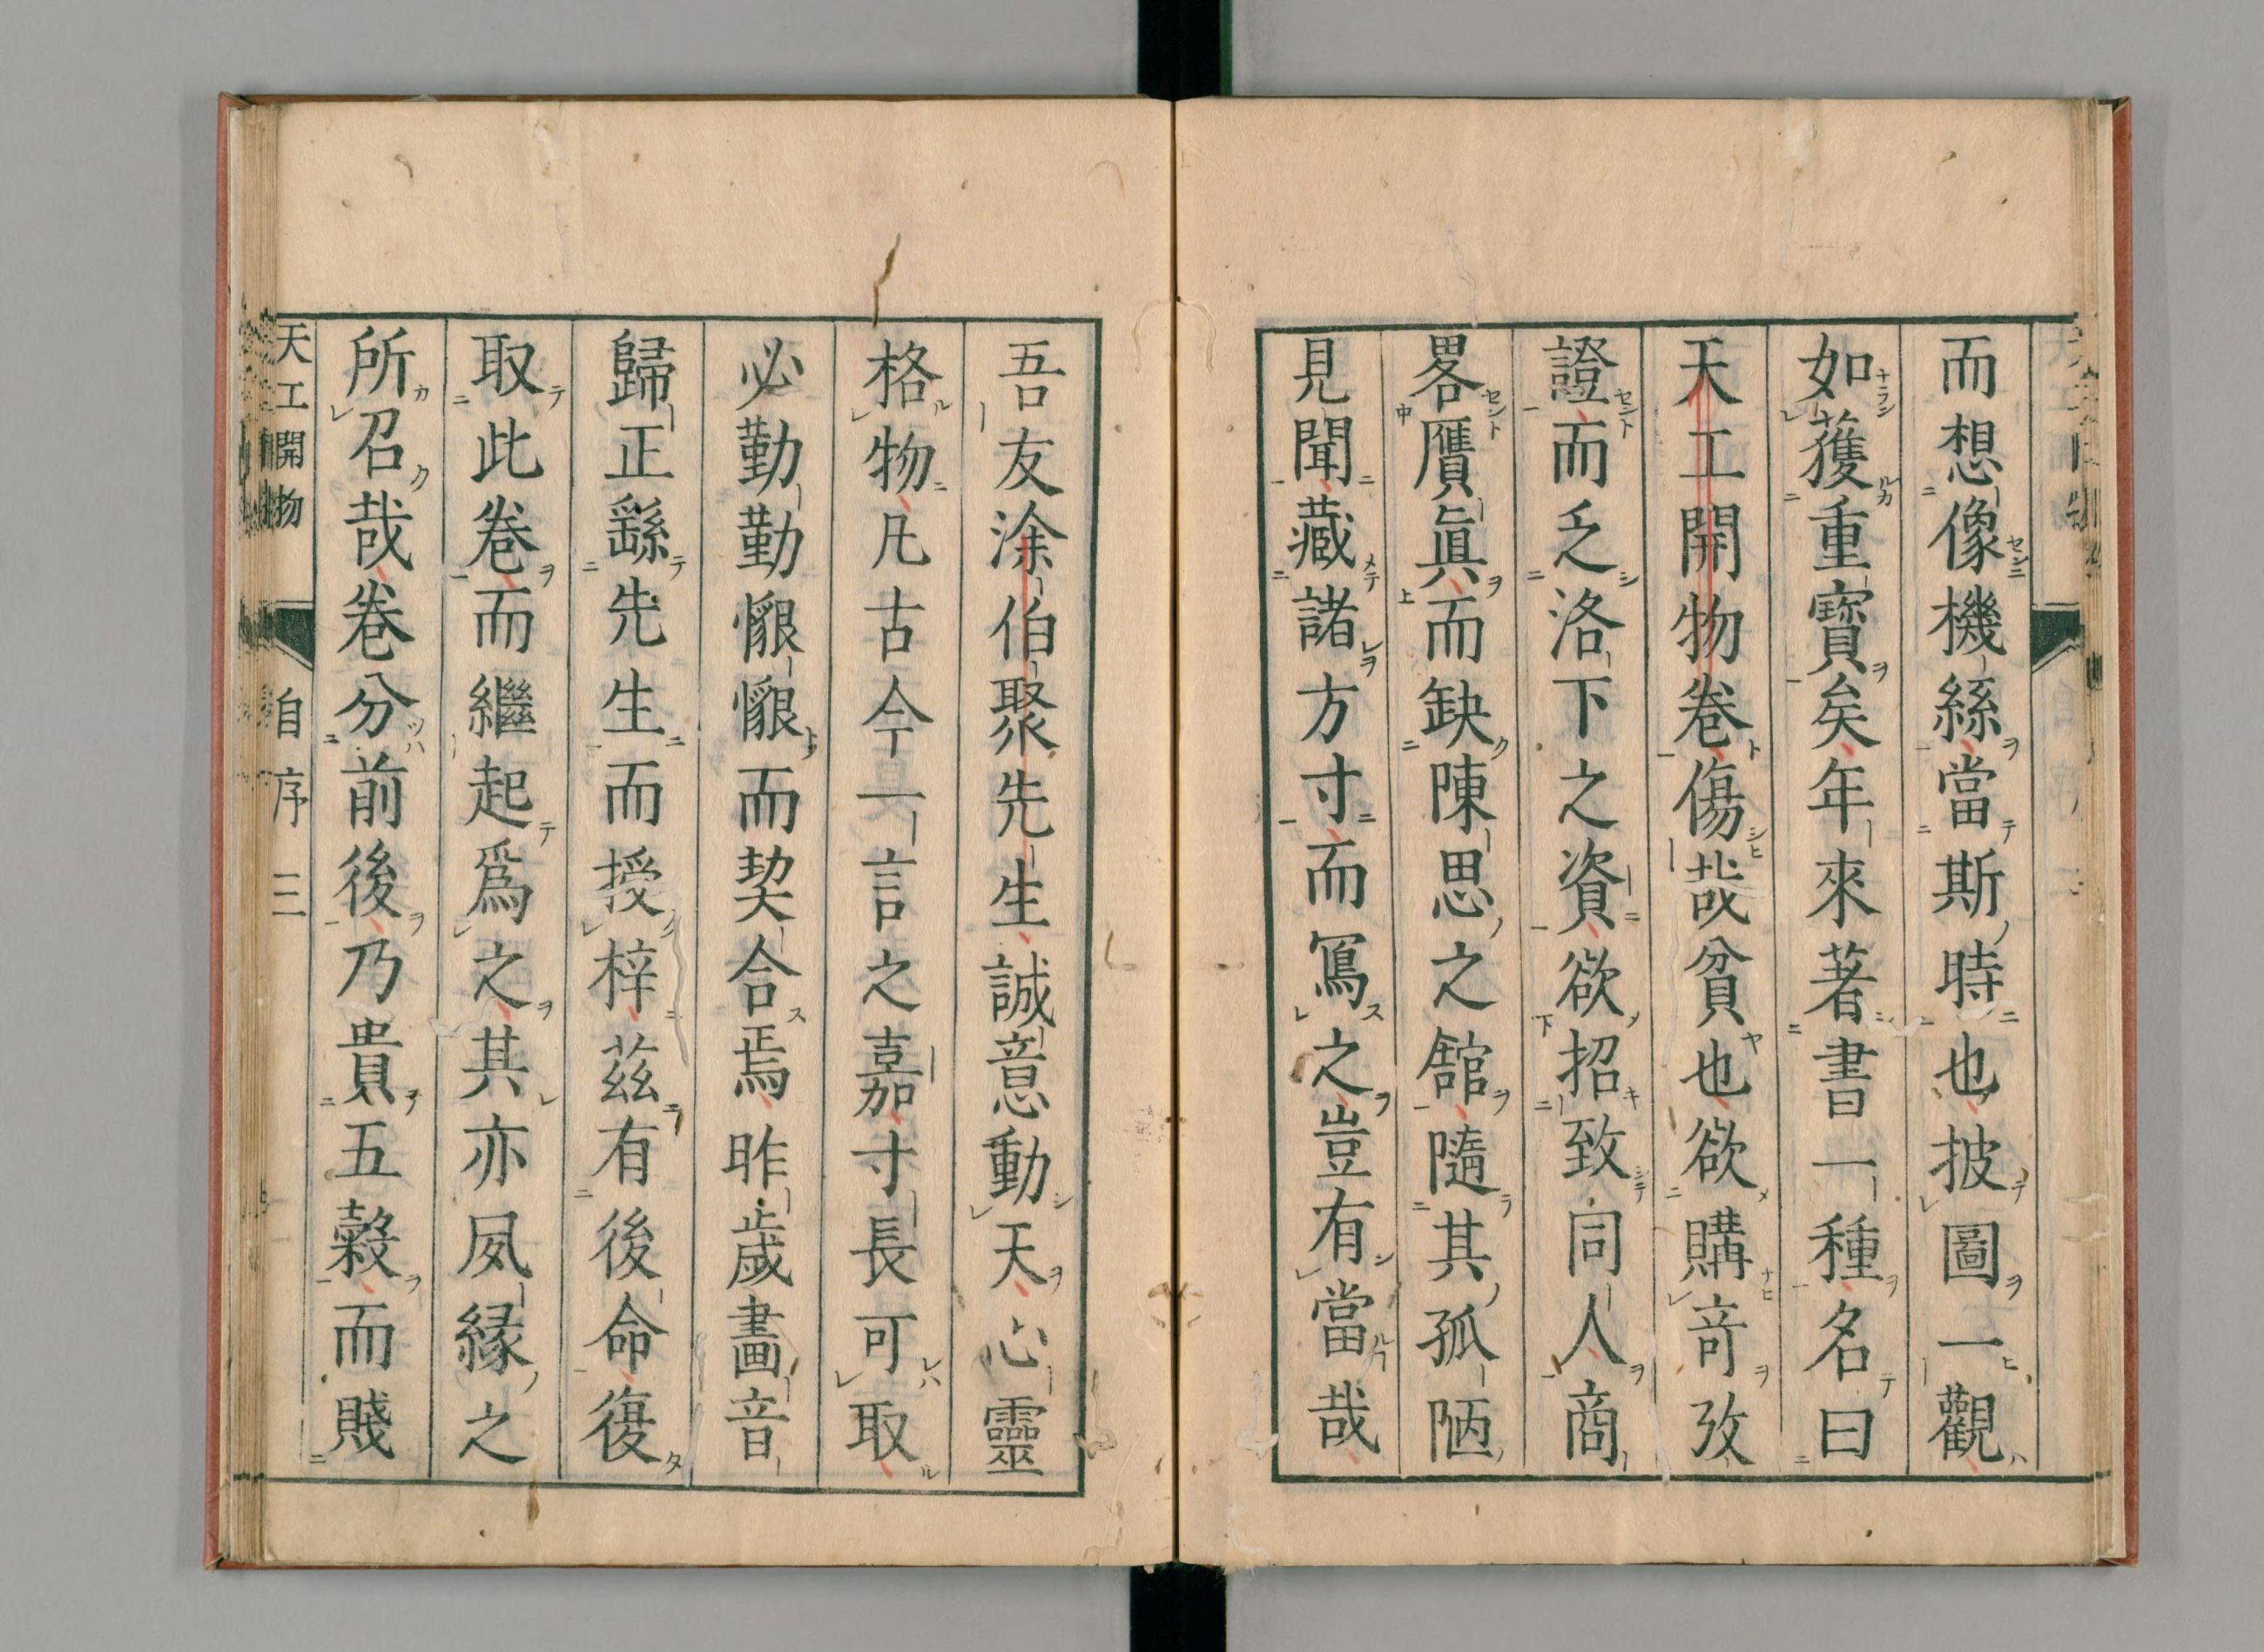 而想像機絲當斯時也披圖一觀
如獲重寳矣年來著書一種名曰
天工開物卷傷哉貧也欲購竒攷
證而乏洛下之資欲招致同人商
畧贋眞而缺陳思之舘隨其孤陋
見聞藏諸方寸而冩之豈有當哉
吾友涂伯聚先生誠意動天心靈
格物凡古今一言之嘉寸長可取
必勤勤懇懇而契合焉昨歲畫音
歸正繇先生而授梓茲有後命復
取此卷而繼起爲之其亦夙緣之
所召哉卷分前後乃貴五穀而賤
天工開物 自序 三